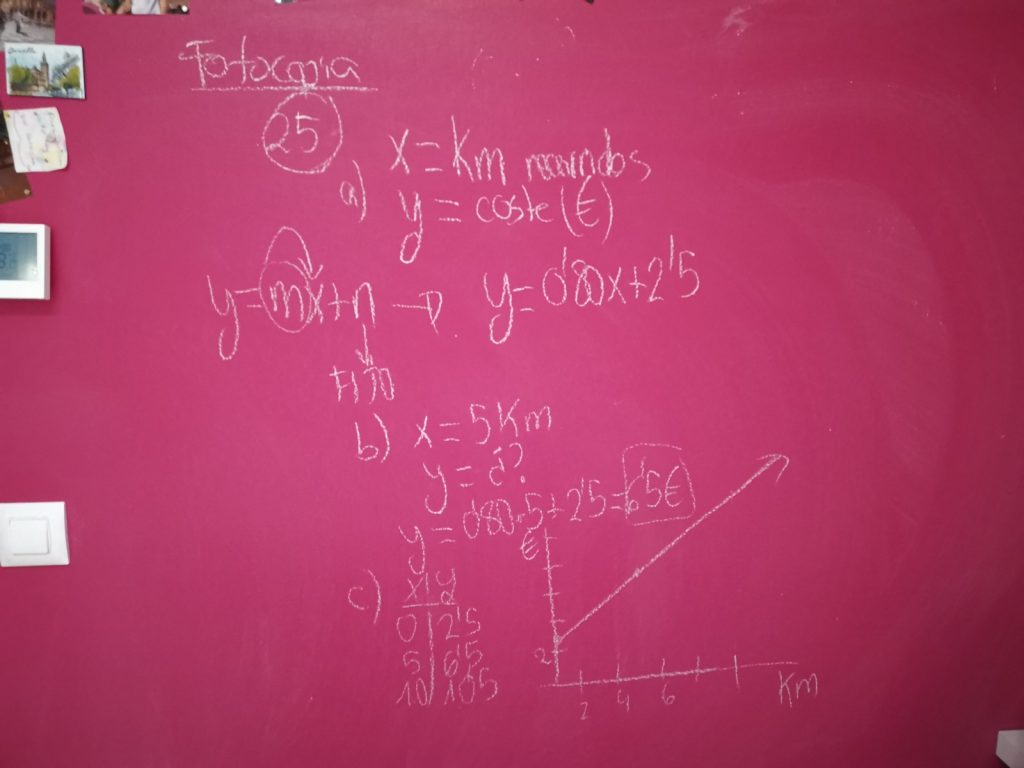 Fotocopia
25
a) x = Km recorridos
y = coste (€)
y = mx + n → y = 0'80x + 2'5
FIJO
b) x = 5 Km
y = ¿?
y = 0'80 · 5 + 2'5 = 6'5€
c) x y
0 2'5
5 6'5
10 10'5
€
2
2 4 6
Km